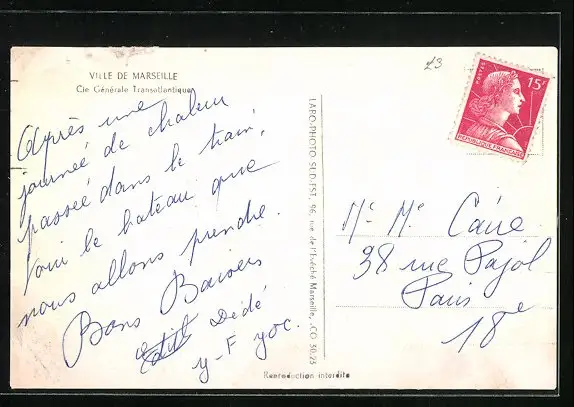 VILLE DE MARSEILLE
Cie Générale Transatlantique
Après une
journée de chaleur
passée dans le train,
Voici le bateau que
nous allons prendre.
Bons Baisers
Dédé
y-F
LABO-PHOTO SUD-EST, 96, rue de l'Évêché Marseille, .CO 30.23
Reproduction interdite
23
15F
POSTES
REPUBLIQUE FRANÇAISE
Mr Me Caire
38 rue Pajol
Paris
18e